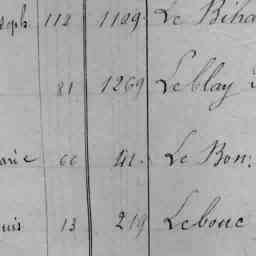 seph 112 1109. Le Biha
81 1269 Leblay
arie 66 41. Le Bon
uis 13 219 Lebouc